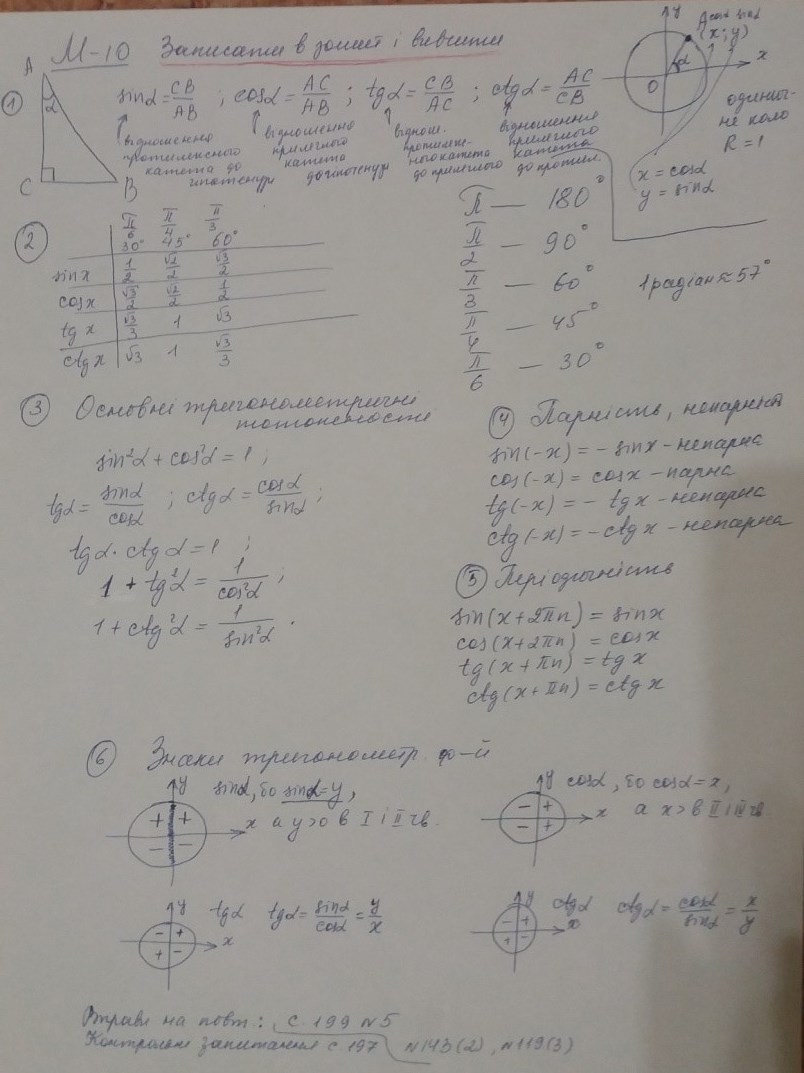 М-10 Записати в зошит і вивчити
A cosα sinα
(x; y)
y
x
O
α
одинич-
не коло
R = 1
x = cosα
y = sinα
A
α
C
B
① sinα = CB/AB ; cosα = AC/AB ; tgα = CB/AC ; ctgα = AC/CB
відношення протилежного катета до гіпотенузи
відношення прилеглого катета до гіпотенузи
віднош. протилеж-ного катета до прилеглого
відношення прилеглого катета до протил.
② π/6 π/4 π/3
30° 45° 60°
sin x 1/2 √2/2 √3/2
cos x √3/2 √2/2 1/2
tg x √3/3 1 √3
ctg x √3 1 √3/3
π — 180°
π/2 — 90°
π/3 — 60°
π/4 — 45°
π/6 — 30°
1 радіан ≈ 57°
③ Основні тригонометричні
тотожності
sin²α + cos²α = 1 ;
tgα = sinα/cosα ; ctgα = cosα/sinα ;
tgα · ctgα = 1 ;
1 + tg²α = 1/cos²α ;
1 + ctg²α = 1/sin²α .
④ Парність, непарність
sin(-x) = - sinx - непарна
cos(-x) = cosx - парна
tg(-x) = - tgx - непарна
ctg(-x) = - ctgx - непарна
⑤ Періодичність
sin(x+2πn) = sinx
cos(x+2πn) = cosx
tg(x+πn) = tgx
ctg(x+πn) = ctgx
⑥ Знаки тригонометр. ф-й
y sinα, бо sinα=y,
x а y>0 в І і ІІ чв.
+ +
- -
y cosα, бо cosα=x,
x а x> в ІІ і ІV чв
- +
- +
y tgα tgα = sinα/cosα = y/x
- +
+ -
x
y ctgα ctgα = cosα/sinα = x/y
- +
+ -
x
Вправи на повт.: с. 199 №5
Контрольні запитання с. 197 №143(2), №119(3)